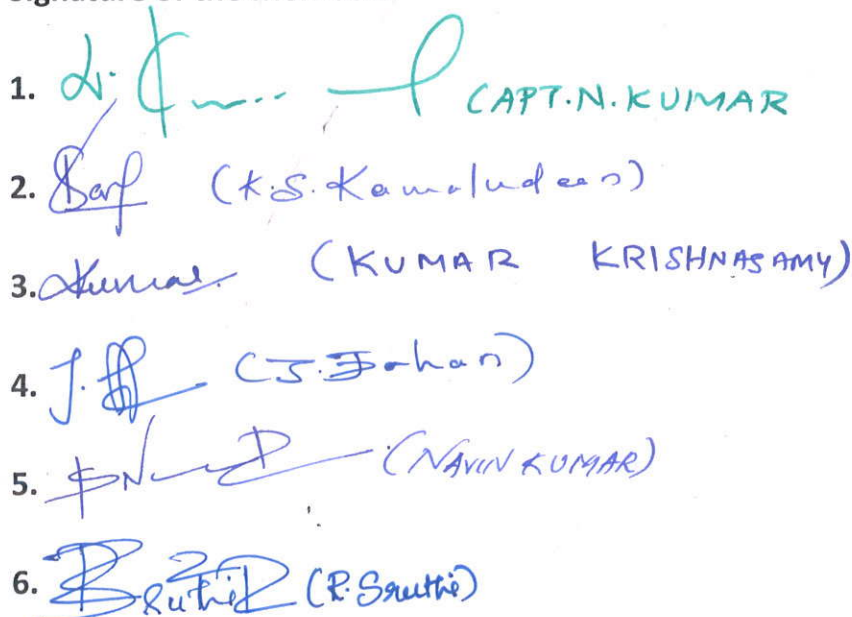 1. CAPT.N.KUMAR
2. (K.S.Kamaludeen)
3. Kumar. (KUMAR KRISHNASAMY)
4. J. (J.Johan)
5. (NAVIN KUMAR)
6. Sruthi R (R.Sruthi)